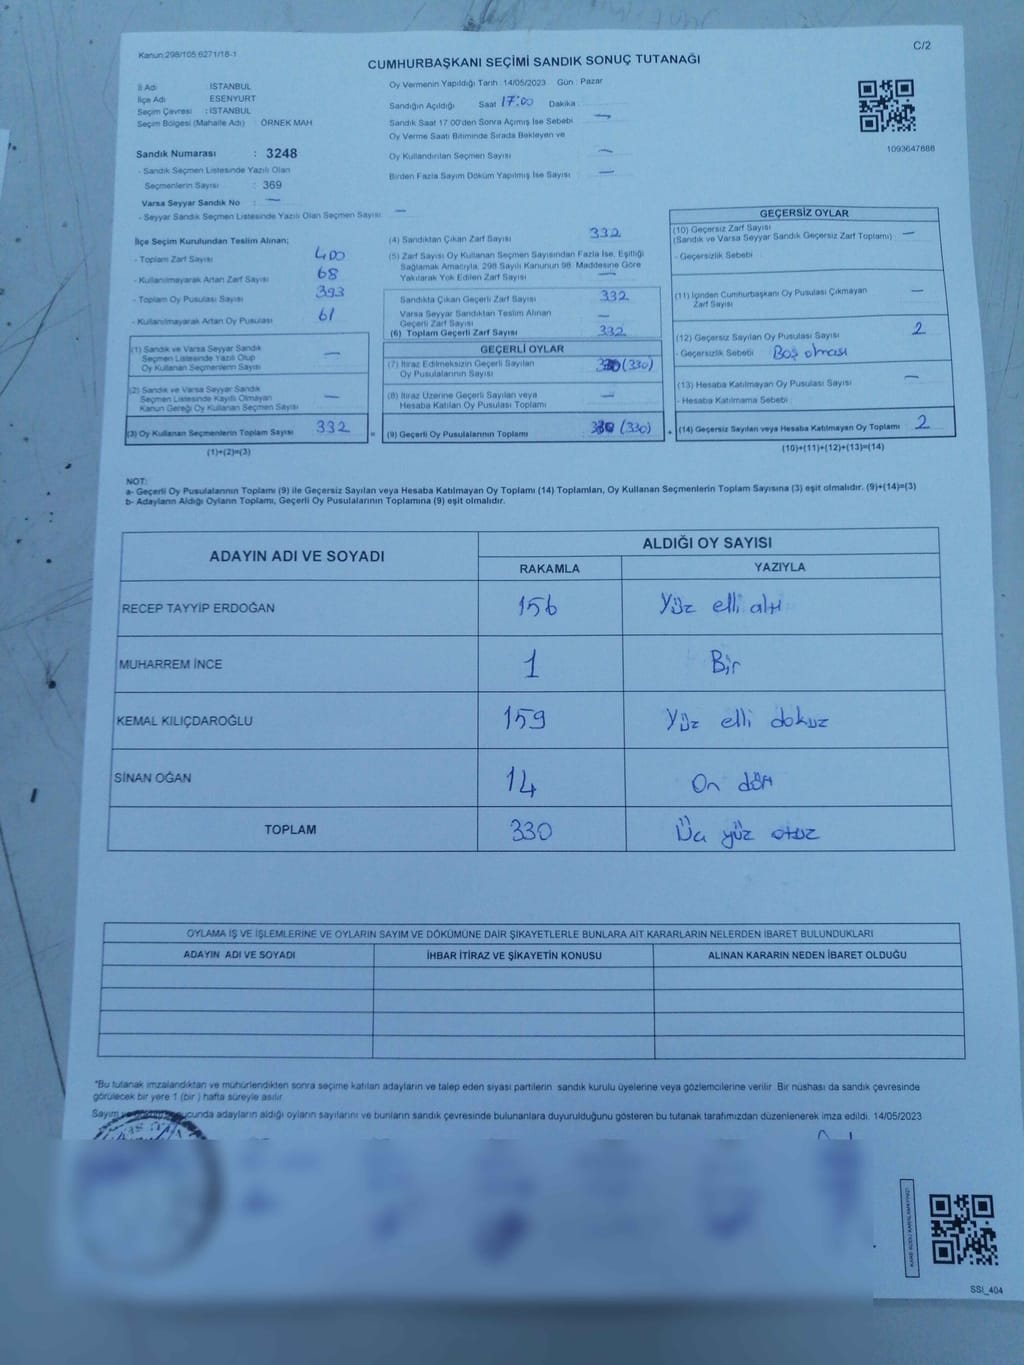 Kanun:298/105.6271/18-1
C/2
CUMHURBAŞKANI SEÇİMİ SANDIK SONUÇ TUTANAĞI
İl Adı İSTANBUL
İlçe Adı ESENYURT
Seçim Çevresi : İSTANBUL
Seçim Bölgesi (Mahalle Adı) ÖRNEK MAH
Sandık Numarası : 3248
- Sandık Seçmen Listesinde Yazılı Olan
Seçmenlerin Sayısı : 369
Varsa Seyyar Sandık No : —
- Seyyar Sandık Seçmen Listesinde Yazılı Olan Seçmen Sayısı —
Oy Vermenin Yapıldığı Tarih : 14/05/2023 Gün : Pazar
Sandığın Açıldığı Saat 17:00 Dakika :
Sandık Saat 17.00'den Sonra Açımış İse Sebebi —
Oy Verme Saati Bitiminde Sırada Bekleyen ve
Oy Kullandırılan Seçmen Sayısı —
Birden Fazla Sayım Döküm Yapılmış İse Sayısı —
1093647888
İlçe Seçim Kurulundan Teslim Alınan;
- Toplam Zarf Sayısı 400
- Kullanılmayarak Artan Zarf Sayısı 68
- Toplam Oy Pusulası Sayısı 393
- Kullanılmayarak Artan Oy Pusulası 61
(1) Sandık ve Varsa Seyyar Sandık
Seçmen Listesinde Yazılı Olup
Oy Kullanan Seçmenlerin Sayısı —
(2) Sandık ve Varsa Seyyar Sandık
Seçmen Listesinde Kayıtlı Olmayan
Kanun Gereği Oy Kullanan Seçmen Sayısı —
(3) Oy Kullanan Seçmenlerin Toplam Sayısı 332 =
(1)+(2)=(3)
(4) Sandıktan Çıkan Zarf Sayısı 332
(5) Zarf Sayısı Oy Kullanan Seçmen Sayısından Fazla İse, Eşitliği
Sağlamak Amacıyla, 298 Sayılı Kanunun 98. Maddesine Göre
Yakılarak Yok Edilen Zarf Sayısı —
Sandıkta Çıkan Geçerli Zarf Sayısı 332
Varsa Seyyar Sandıktan Teslim Alınan
Geçerli Zarf Sayısı —
(6) Toplam Geçerli Zarf Sayısı 332
GEÇERLİ OYLAR
(7) İtiraz Edilmeksizin Geçerli Sayılan
Oy Pusulalarının Sayısı (330)
(8) İtiraz Üzerine Geçerli Sayılan veya
Hesaba Katılan Oy Pusulası Toplamı —
(9) Geçerli Oy Pusulalarının Toplamı (330) +
GEÇERSİZ OYLAR
(10) Geçersiz Zarf Sayısı
(Sandık ve Varsa Seyyar Sandık Geçersiz Zarf Toplamı) —
- Geçersizlik Sebebi
(11) İçinden Cumhurbaşkanı Oy Pusulası Çıkmayan
Zarf Sayısı —
(12) Geçersiz Sayılan Oy Pusulası Sayısı 2
- Geçersizlik Sebebi Boş olması
(13) Hesaba Katılmayan Oy Pusulası Sayısı —
- Hesaba Katılmama Sebebi
(14) Geçersiz Sayılan veya Hesaba Katılmayan Oy Toplamı 2
(10)+(11)+(12)+(13)=(14)
NOT:
a- Geçerli Oy Pusulalarının Toplamı (9) ile Geçersiz Sayılan veya Hesaba Katılmayan Oy Toplamı (14) Toplamları, Oy Kullanan Seçmenlerin Toplam Sayısına (3) eşit olmalıdır. (9)+(14)=(3)
b- Adayların Aldığı Oyların Toplamı, Geçerli Oy Pusulalarının Toplamına (9) eşit olmalıdır.
ADAYIN ADI VE SOYADI
ALDIĞI OY SAYISI
RAKAMLA YAZIYLA
RECEP TAYYİP ERDOĞAN 156 Yüz elli altı
MUHARREM İNCE 1 Bir
KEMAL KILIÇDAROĞLU 159 Yüz elli dokuz
SİNAN OĞAN 14 On dört
TOPLAM 330 Üç yüz otuz
OYLAMA İŞ VE İŞLEMLERİNE VE OYLARIN SAYIM VE DÖKÜMÜNE DAİR ŞİKAYETLERLE BUNLARA AİT KARARLARIN NELERDEN İBARET BULUNDUKLARI
ADAYIN ADI VE SOYADI İHBAR İTİRAZ VE ŞİKAYETİN KONUSU ALINAN KARARIN NEDEN İBARET OLDUĞU
"Bu tutanak imzalandıktan ve mühürlendikten sonra seçime katılan adayların ve talep eden siyasi partilerin sandık kurulu üyelerine veya gözlemcilerine verilir. Bir nüshası da sandık çevresinde
görülecek bir yere 1 (bir ) hafta süreyle asılır.
Sayım ucunda adayların aldığı oyların sayılarını ve bunların sandık çevresinde bulunanlara duyurulduğunu gösteren bu tutanak tarafımızdan düzenlenerek imza edildi. 14/05/2023
SSI_404